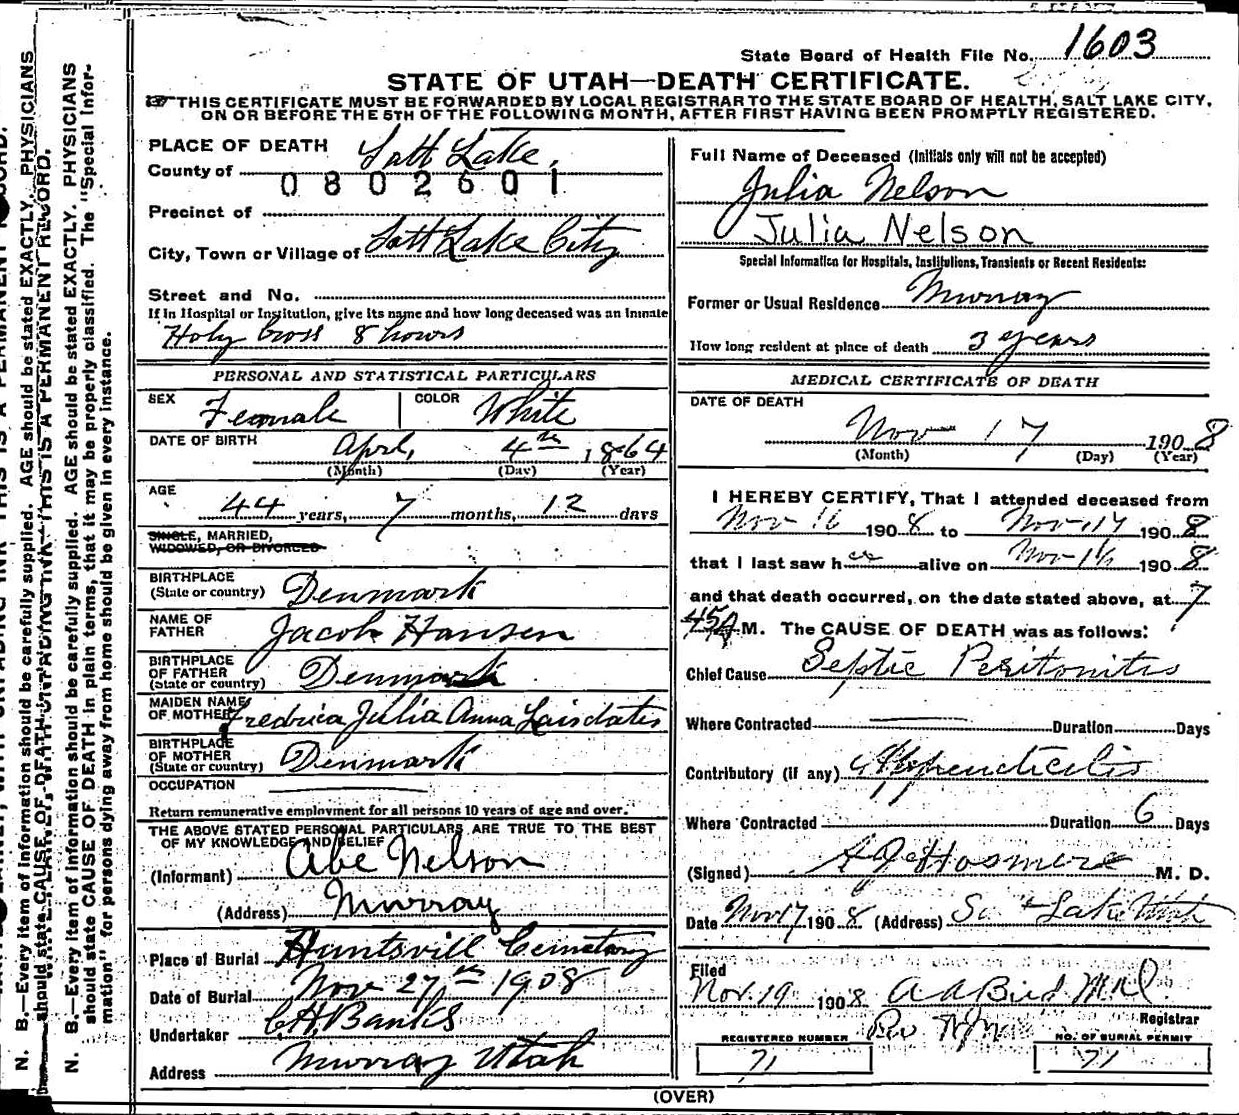 State Board of Health File No. 1603
STATE OF UTAH—DEATH CERTIFICATE.
THIS CERTIFICATE MUST BE FORWARDED BY LOCAL REGISTRAR TO THE STATE BOARD OF HEALTH, SALT LAKE CITY,
ON OR BEFORE THE 5TH OF THE FOLLOWING MONTH, AFTER FIRST HAVING BEEN PROMPTLY REGISTERED.
PLACE OF DEATH
County of Salt Lake,
0802601
Precinct of
City, Town or Village of Salt Lake City
Street and No.
If in Hospital or Institution, give its name and how long deceased was an inmate
Holy Cross 8 hours
PERSONAL AND STATISTICAL PARTICULARS
SEX Female COLOR White
DATE OF BIRTH April, 4th 1864
(Month) (Day) (Year)
AGE
44 years, 7 months, 12 days
SINGLE, MARRIED,
WIDOWED, OR DIVORCED
BIRTHPLACE
(State or country) Denmark
NAME OF
FATHER Jacob Hansen
BIRTHPLACE
OF FATHER
(State or country) Denmark
MAIDEN NAME
OF MOTHER Fredrica Julia Anna
BIRTHPLACE
OF MOTHER
(State or country) Denmark
OCCUPATION
Return remunerative employment for all persons 10 years of age and over.
THE ABOVE STATED PERSONAL PARTICULARS ARE TRUE TO THE BEST
OF MY KNOWLEDGE AND BELIEF
(Informant) Abe Nelson
(Address) Murray
Place of Burial Huntsvill Cemetary
Date of Burial Nov 27th 1908
Undertaker C.H. Banks
Address Murray Utah
Full Name of Deceased (Initials only will not be accepted)
Julia Nelson
Julia Nelson
Special Information for Hospitals, Institutions, Transients or Recent Residents:
Former or Usual Residence Murray
How long resident at place of death 3 years
MEDICAL CERTIFICATE OF DEATH
DATE OF DEATH
Nov 17 1908
(Month) (Day) (Year)
I HEREBY CERTIFY, That I attended deceased from
Nov 16 1908 to Nov 17 1908
that I last saw her alive on Nov 16 1908
and that death occurred, on the date stated above, at 7
45 A.M. The CAUSE OF DEATH was as follows:
Chief Cause Septic Peritonitis
Where Contracted Duration Days
Contributory (if any) Appendicitis
Where Contracted Duration 6 Days
(Signed) Hosmere M. D.
Date Nov 17 1908 (Address) Lake Utah
Filed
Nov. 19 1908 A A Bird M.D.
Registrar
REGISTERED NUMBER
71
NO. OF BURIAL PERMIT
71
(OVER)
N. B.—Every item of information should be carefully supplied. AGE should be stated EXACTLY. PHYSICIANS
should state CAUSE OF DEATH
THIS IS A PERMANENT RECORD.
N. B.—Every item of information should be carefully supplied. AGE should be stated EXACTLY. PHYSICIANS
should state CAUSE OF DEATH in plain terms, that it may be properly classified. The "Special Infor-
mation" for persons dying away from home should be given in every instance.